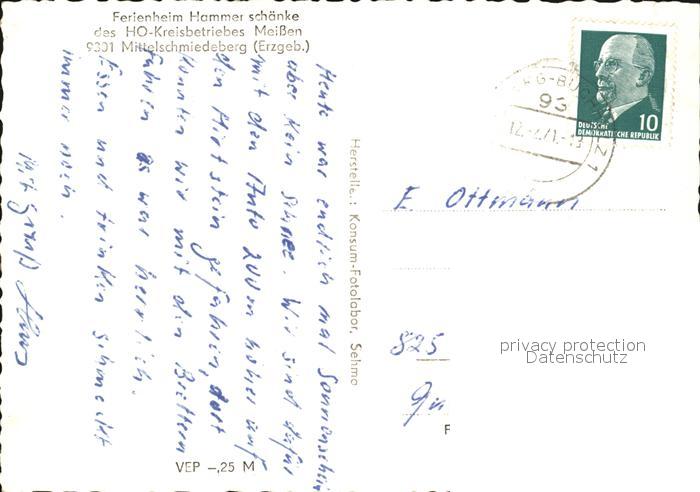 Ferienheim Hammer schänke
des HO-Kreisbetriebes Meißen
9301 Mittelschmiedeberg (Erzgeb.)
Heute war endlich mal Sonnenschein
aber kein Schnee. Wir sind dafür
mit den Auto 200 m höher auf
den Hirtstein gefahren, dort
konnten wir mit den Brettern
fahren es war herrlich.
Essen und trinken schmeckt
immer noch.
Mit Gruß
VEP –,25 M
Herstelle.: Konsum-Fotolabor, Sehma
DEUTSCHE
DEMOKRATISCHE REPUBLIK
10
93
E. Ottmann
825
privacy protection
Datenschutz
F